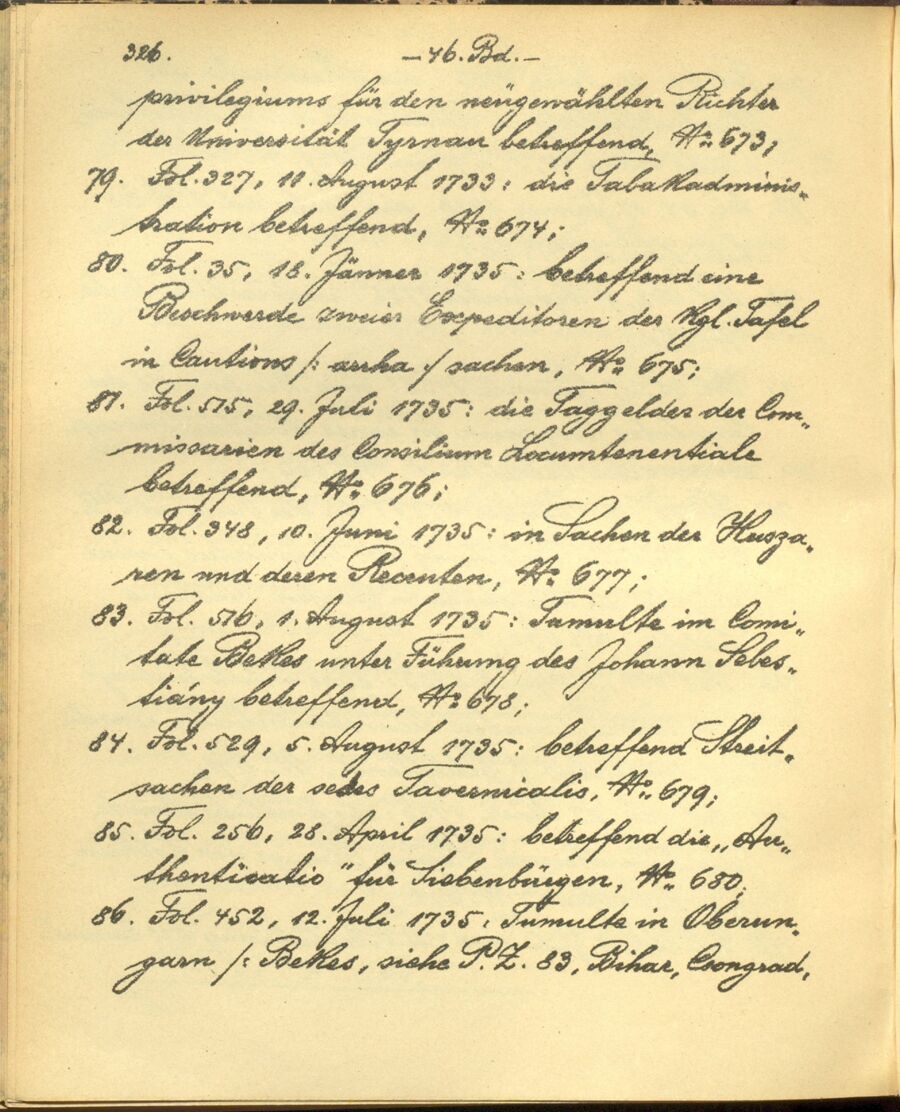 326. — 46. Bd. —
privilegiums für den neugewählten Richter
der Universität Tyrnau betreffend, No 673;
79. Fol. 327, 11. August 1733: die Tabakadminis„
tration betreffend, No 674;
80. Fol. 35, 18. Jänner 1735: betreffend eine
Beschwerde zweier Expeditoren der kgl. Tafel
in Cautions /: arrha :/ sachen, No 675;
81. Fol. 515, 29. Juli 1735: die Taggelder der Com„
missarien des Consilium Locumtenentiale
betreffend, No 676;
82. Fol. 348, 10. Juni 1735: in Sachen der Husza„
ren und deren Recruten, No 677;
83. Fol. 516, 1. August 1735: Tumulte im Comi„
tate Bekes unter Führung des Johann Sebes„
tiány betreffend, No 678;
84. Fol. 529, 5. August 1735: betreffend Streit„
sachen der sedes Tavernicalis, No 679;
85. Fol. 256, 28. April 1735: betreffend die „Au„
thenticatio" für Siebenbürgen, No 680;
86. Fol. 452, 12. Juli 1735: Tumulte in Oberun„
garn /: Bekes, siehe P. Z. 83, Bihar, Csongrad,